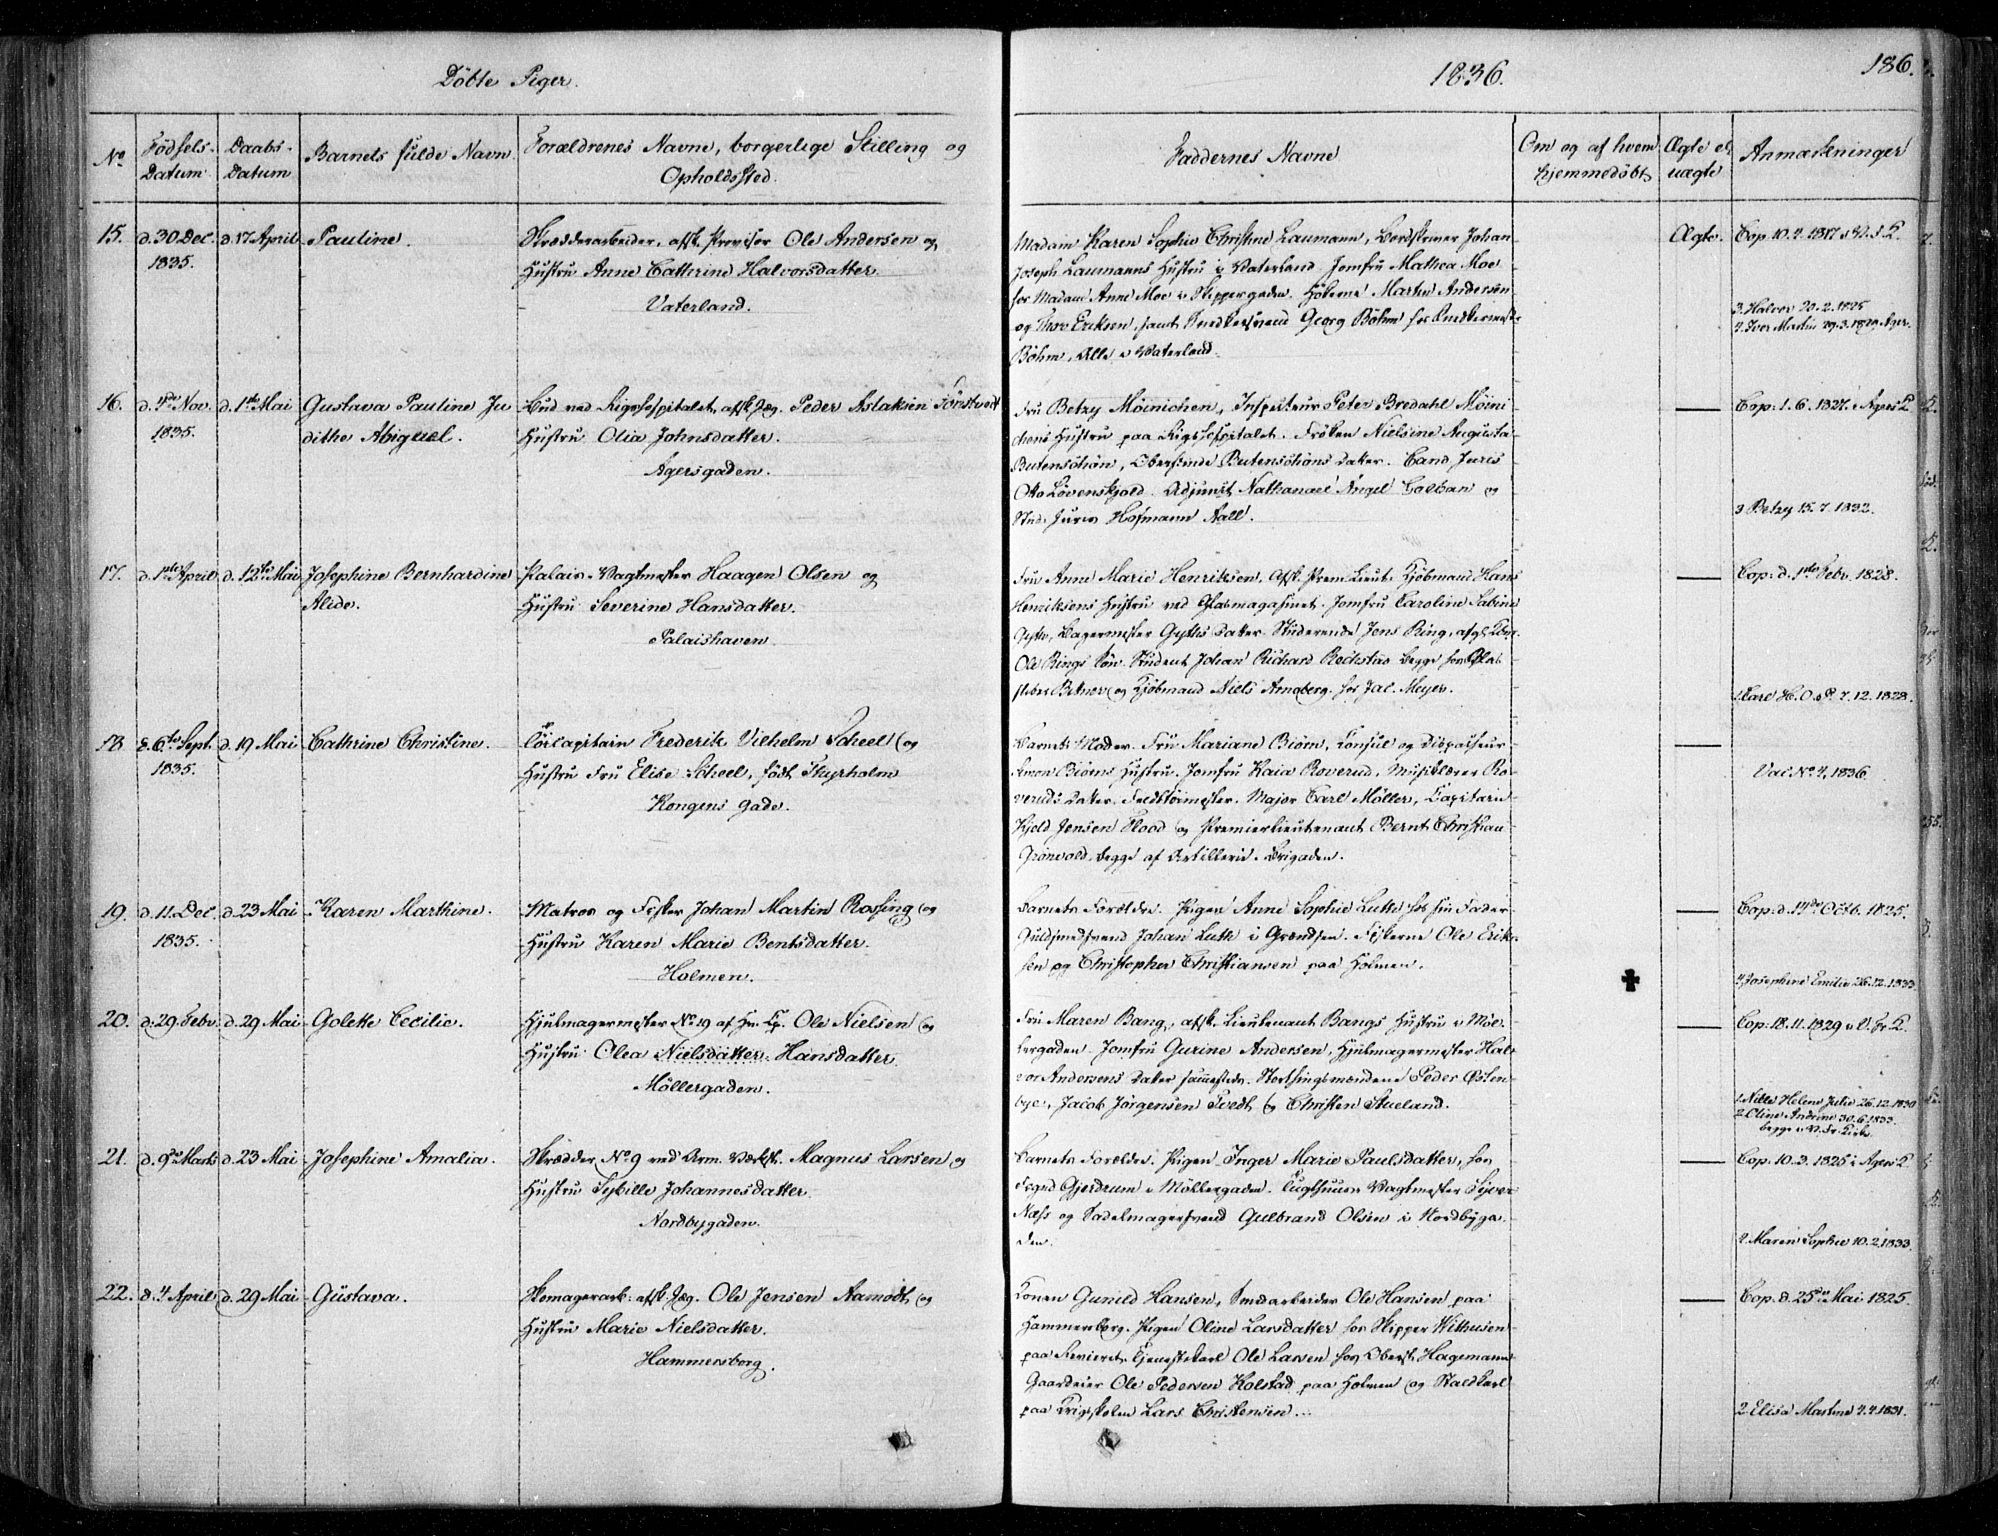 Døbte Piger.
1836.
186.
No
Fødsels-Datum
Daabs-Datum
Barnets fulde Navn
Forældrenes Navne, borgerlige Stilling og Opholdssted.
Faddernes Navne
Om og af hvem hjemmedøbt
Ægte el. uægte
Anmærkninger
15. d. 30 Dec. 1835. d. 17 April Pauline.
Skrædderarbeider, afsk. Provisor Ole Andersen og
Hustru Anne Cathrine Halvorsdatter
Vaterland.
Madam Karen Sophie Christine Laumann, Bordskriver Johan
Joseph Laumanns Hustru i Vaterland. Jomfru Mathea Moe
hos Madam Anne Moe i Skippergaden. Hökerne Martin Andersen
og Thor Eriksen, samt Snedkersvend Georg Böhm hos Snedkermester
Böhm, Alle i Vaterland.
Ægte.
Cop. 10.4.1817
3 Halvor 20.2.1825
4 Iver Martin 29.3.1829 Ager.
16. d. 4de Nov. 1835. d. 1ste Mai Gustava Pauline Ju
dithe Abiguel.
Bud ved Rigshospitalet, afsk. Jæg. Peder Aslaksen Tönstvedt
Hustru Olia Johnsdatter.
Agersgaden.
Fru Betzy Möinichen, Inspecteur Peter Bredahl Möini
chens Hustru paa Rigshospitalet. Frøken Nielsine Augusta
Butenschön, Oberstinde Butenschöns Datter. Cand. Juris
Otto Løvenskjold. Adjunct Nathanael Angel Colban og
Stud. Juris Hofmann Aall.
Cop. 1.6.1827. i Agers K.
3 Betzy 15.7.1832.
17. d. 1ste April d. 12te Mai Josephine Bernhardine
Alide.
Palais-Vagtmester Haagen Olsen og
Hustru Severine Hansdatter.
Palaishaven.
Fru Anne Marie Henriksen, Afsk. Prem. Lieut. Kjöbmand Hans
Henriksens Hustru ved Glasmagasinet. Jomfru Caroline Sabine
Gyth, Bagermester Gyths Datter. Studerende Jens Ring, afg.
Ole Rings Søn. Student Johan Richard Rockstad begge hos
og Kjöbmand Niels Amsberg. hos Jac. Meyer.
Cop. d. 1ste Febr. 1828.
1 Carl H. O. 7.12.1828.
18 d. 6te Sept. 1835. d. 19 Mai Cathrine Christine.
Corlapitain Frederik Vilhelm Scheel og
Hustru Fru Elise Scheel, født Thyrholm
Kongens gade.
Barnets Moder. Fru Mariane Biørn, Consul og Dispaiseur
Amon Biørns Hustru. Jomfru Kaia Roverud. Musiklærer Ro
veruds Datter. Feldtöimester. Major Carl Möller, Capitain
Kjeld Jensen Flood og Premierlieutenant Bernt Christian
Grönvold. begge af Artillerie-Brigaden.
Vac. No 4, 1836.
19. d. 11. Dec. 1835. d. 23 Mai Karen Marthine.
Matros og Fisker Johan Martin Rossing og
Hustru Karen Marie Bentsdatter.
Holmen.
Barnets Forældre. Pigen Anne Sophie Luth hos sin Fader
Guldsmedsvend Johan Luth i Grændsen. Fiskerne Ole Erik-
sen og Christopher Christiansen paa Holmen.
Cop. d. 14de Octb. 1825.
4 Josephine Emilie 26.12.1833
20. d. 29. Febr. d. 29 Mai Golette Cecilie.
Hjulmagermester No 19 af Ole Nielsen og
Hustru Olea Nielsdatter. Hansdatter.
Möllergaden.
Fru Maren Bang, afsk. Lieutenant Bangs Hustru i Möl-
lergaden. Jomfru Gurine Andersen, Hjulmagermester Hal-
vor Andersens Datter sammesteds. Storthingsmændene Peder Østen
bye, Jacob Jørgensen Tvedt og Christen Stueland.
Cop. 18.11.1829 i V. Fr. K.
1 Nille Helene Julie 26.12.1830
2 Oline Andrine 30.6.1833.
begge i V. Fr. Kirke
21. d. 9de Marts d. 23 Mai Josephine Amalia.
Skrædder No 9 ved Arm. Værkst. Magnus Larsen og
Hustru Sybille Johannesdatter.
Nordbygaden.
Barnets Forældre. Pigen Inger Marie Paulsdatter, hos
Foged Gjerdrum i Möllergaden. Tugthuus Vagtmester Syver
Næss og Sadelmagersvend Gulbrand Olsen i Nordbyga-
den.
Cop. 10.3.1825 i Agers K.
2 Maren Sophie 10.2.1833.
22. d. 4 April d. 29 Mai Gustava.
Skomagerarb. afsk. Jæg. Ole Jensen Aamodt og
Hustru Marie Nielsdatter.
Hammersborg.
Konen Gunild Hansen, Ole Hansen paa
Hammersborg. Pigen Oline Larsdatter hos Skipper Withusen
paa Revieret. Tjenestekarl Ole Larsen hos Oberst Hagemann
Gaardeier Ole Pedersen Kolstad paa Holmen og Staldkarl
paa Krigsskolen Lars Christensen...
Cop. d. 25de Mai 1825.
2 Elisa Martine 7.4.1831.